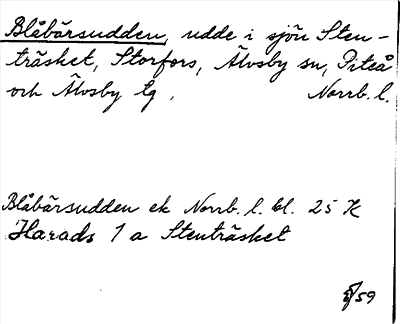 Blåbärsudden, udde i sjön Sten-
träsket, Storfors, Älvsby sn, Piteå
och Älvsby tg, Norrb. l.
Blåbärsudden ek Norrb. l. bl. 25 K
Harads 1 a Stenträsket
59